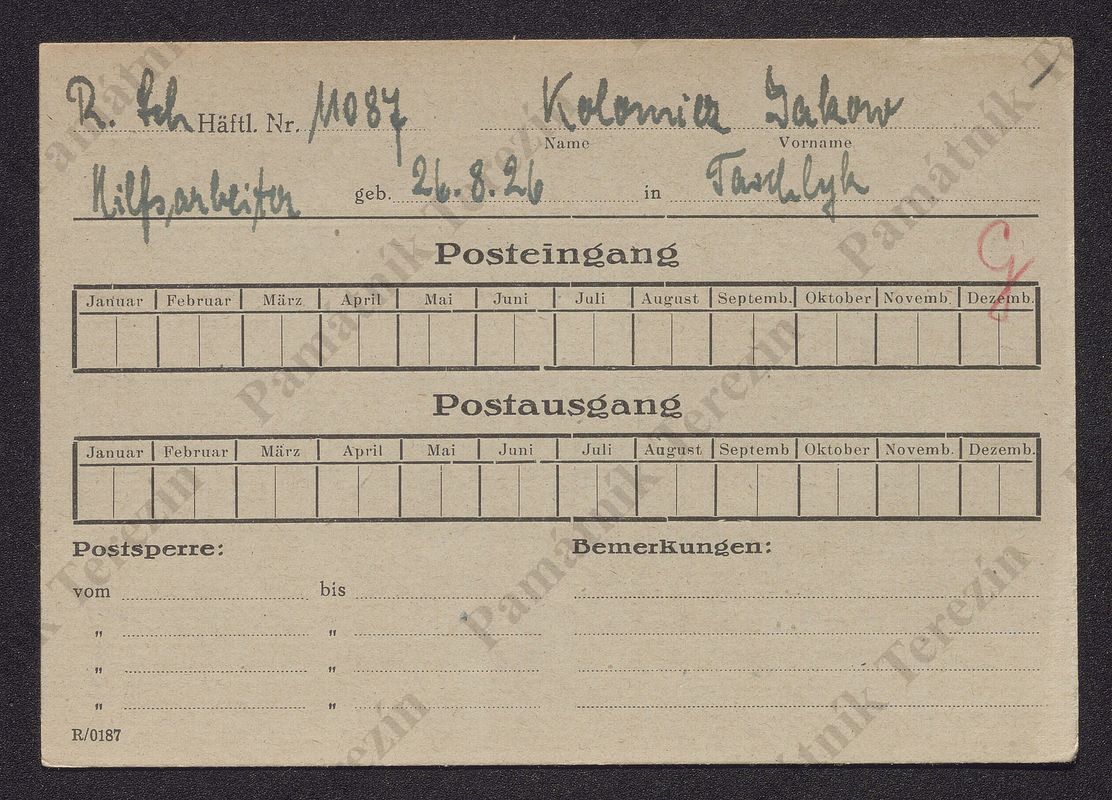 R. Sch Häftl. Nr. 11087 Kolomiez Jakow
Name Vorname
Hilfsarbeiter geb. 26.8.26 in Taschlyk
G
Posteingang
Januar Februar März April Mai Juni Juli August Septemb. Oktober Novemb. Dezemb.
Postausgang
Januar Februar März April Mai Juni Juli August Septemb Oktober Novemb. Dezemb.
Postsperre: Bemerkungen:
vom bis
" "
" "
" "
R/0187
Památník Terezín